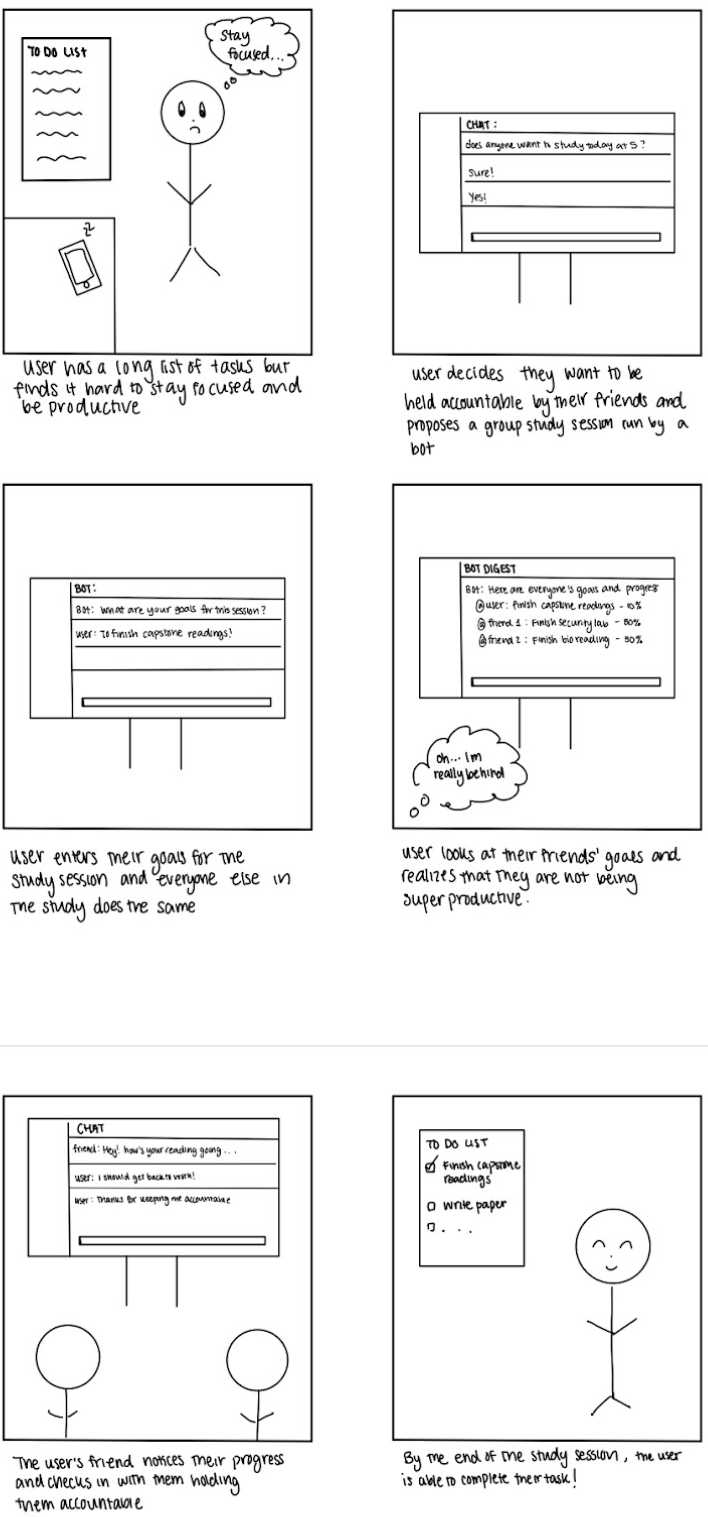 TO DO LIST
Stay
focused...
User has a long list of tasks but
finds it hard to stay focused and
be productive
CHAT:
does anyone want to study today at 5?
Sure!
Yes!
user decides they want to be
held accountable by their friends and
proposes a group study session run by a
bot
BOT:
Bot: What are your goals for this session?
user: To finish capstone readings!
user enters their goals for the
study session and everyone else in
the study does the same
BOT DIGEST
Bot: Here are everyone's goals and progress
@user: finish capstone readings - 10%
@friend 1: Finish security lab - 50%
@friend 2: Finish bio reading - 50%
oh... Im
really behind
user looks at their friends' goals and
realizes that they are not being
super productive.
CHAT
friend: Hey! how's your reading going...
user: I should get back to work!
user: Thanks for keeping me accountable
The user's friend notices their progress
and checks in with them holding
them accountable
TO DO LIST
Finish capstone
readings
write paper
...
By the end of the study session, the user
is able to complete their task!